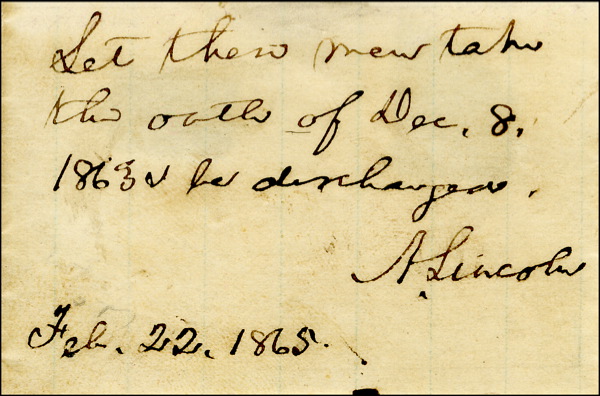 Let these men take
the oath of Dec. 8.
1863 & be discharged.
A. Lincoln
Feb. 22. 1865.